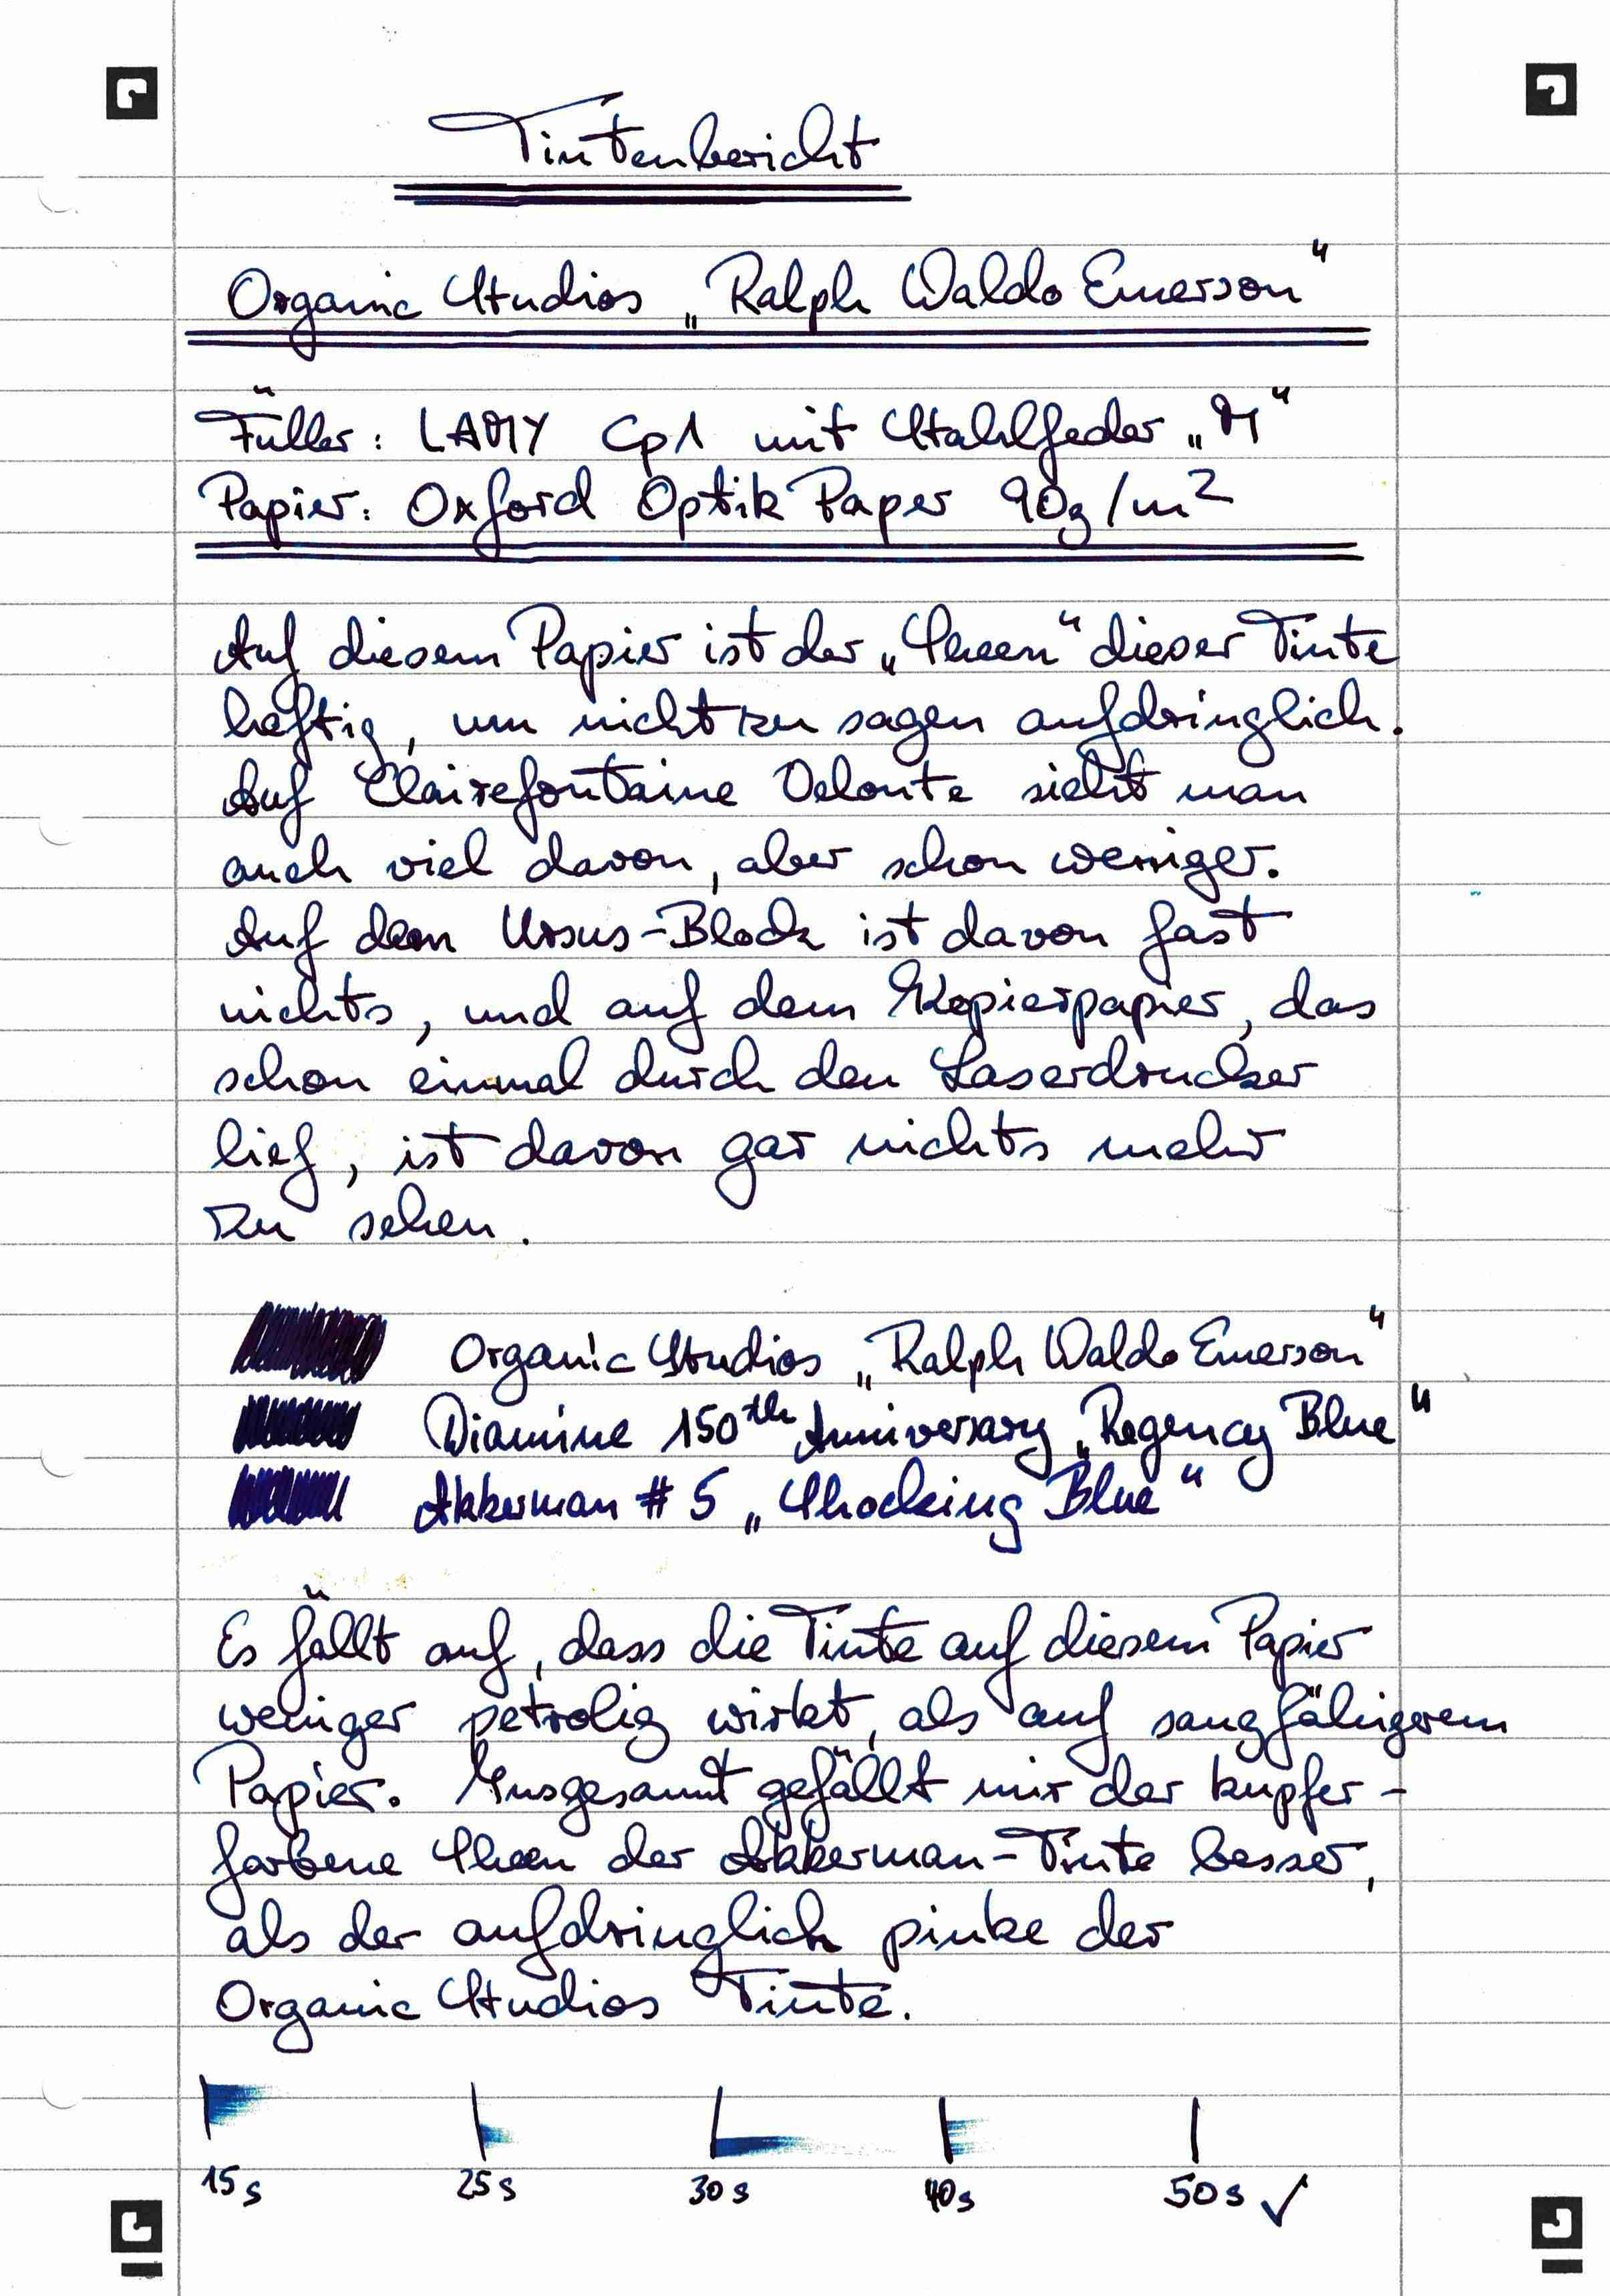 Tintenbericht
Organic Studios „Ralph Waldo Emerson"
Füller: LAMY Cp1 mit Stahlfeder „M"
Papier: Oxford Optik Paper 90g/m²
Auf diesem Papier ist der „Sheen" dieser Tinte
heftig, um nicht zu sagen aufdringlich.
Auf Clairefontaine Veloute sieht man
auch viel davon, aber schon weniger.
Auf dem Ursus-Block ist davon fast
nichts, und auf dem Kopierpapier, das
schon einmal durch den Laserdrucker
lief, ist davon gar nichts mehr
zu sehen.
Organic Studios „Ralph Waldo Emerson"
Diamine 150th Anniversary „Regency Blue"
Akkerman #5 „Shocking Blue"
Es fällt auf, dass die Tinte auf diesem Papier
weniger petrolig wirkt, als auf saugfähigerem
Papier. Insgesamt gefällt mir der kupfer-
farbene Sheen der Akkerman-Tinte besser,
als der aufdringlich pinke der
Organic Studios Tinte.
15s 25s 30s 40s 50s ✓